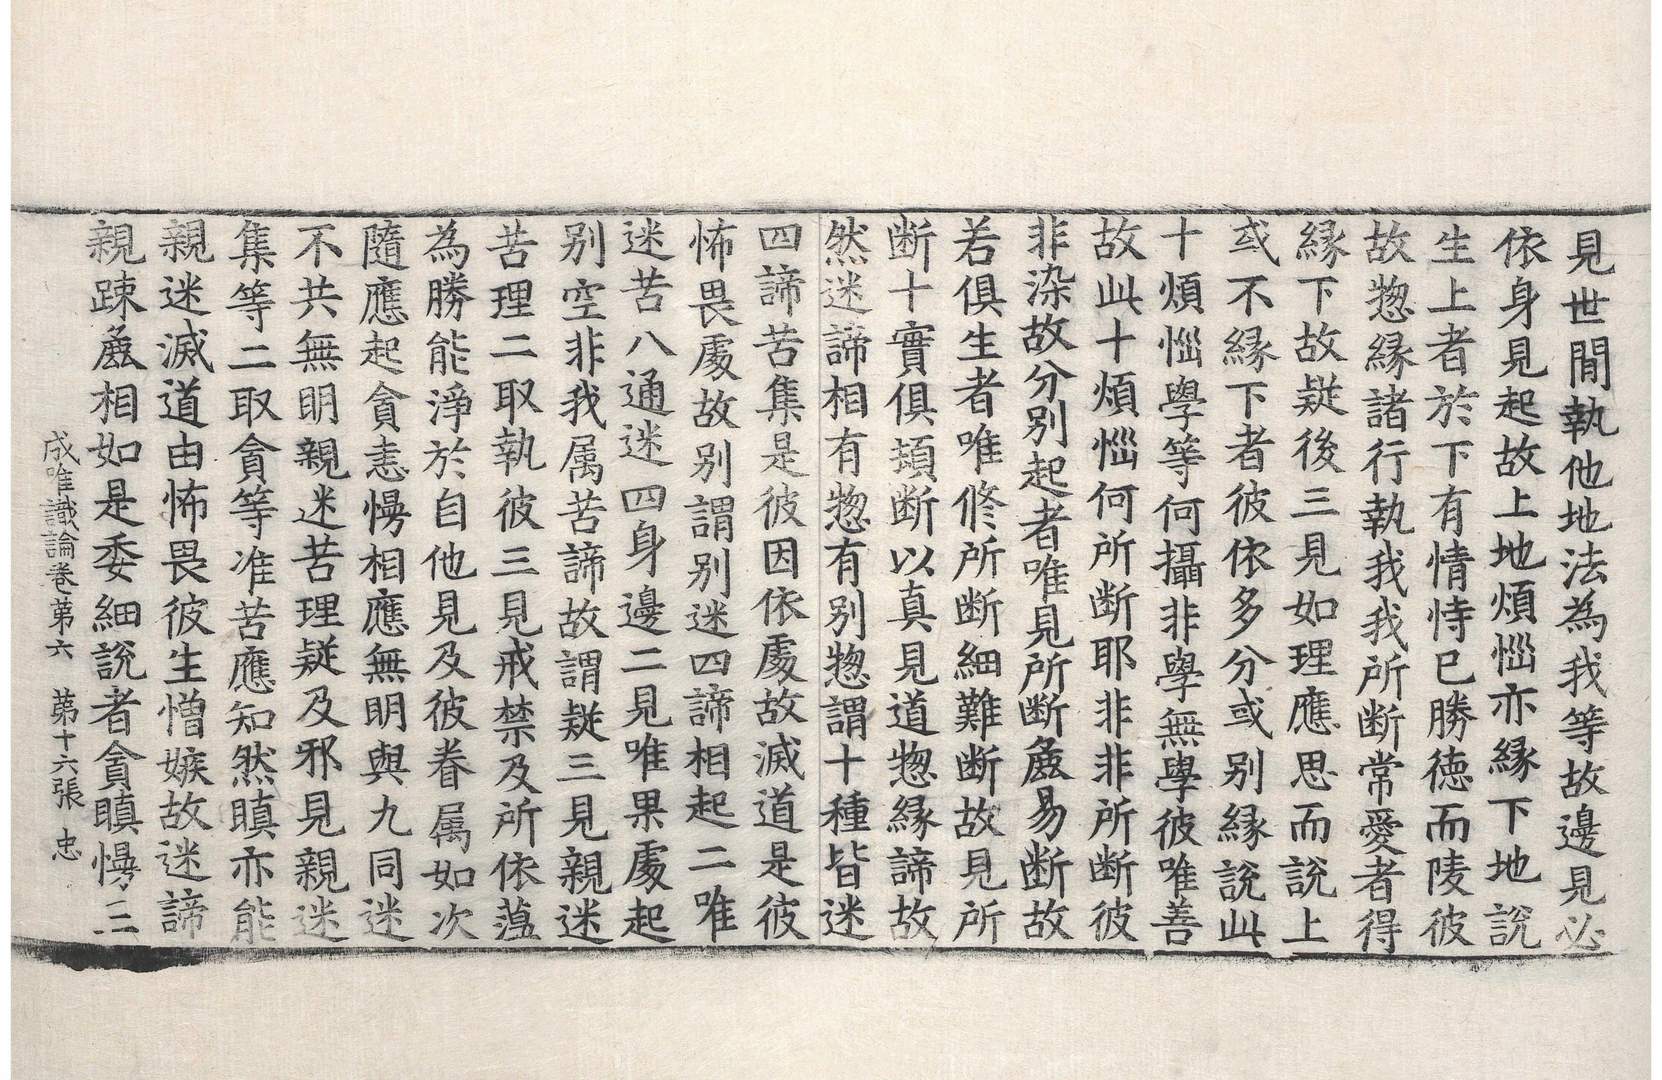 見世間執他地法為我等故邊見必
依身見起故上地煩惱亦縁下地說
生上者於下有情恃已勝德而陵彼
故惣縁諸行執我我所断常愛者得
縁下故疑後三見如理應思而說上
或不縁下者彼依多分或别縁說此
十煩惱學等何攝非學無學彼唯善
故此十煩惱何所断耶非非所断彼
非染故分别起者唯見所断麁易断故
若俱生者唯修所断細難断故見所
断十實俱頓断以真見道惣縁諦故
然迷諦相有惣有别惣謂十種皆迷
四諦苦集是彼因依處故滅道是彼
怖畏處故别謂别迷四諦相起二唯
迷苦八通迷四身邊二見唯果處起
别空非我属苦諦故謂疑三見親迷
苦理二取執彼三見戒禁及所依蕰
為勝能淨於自他見及彼眷属如次
隨應起貪恚慢相應無明與九同迷
不共無明親迷苦理疑及邪見親迷
集等二取貪等准苦應知然瞋亦能
親迷滅道由怖畏彼生憎嫉故迷諦
親踈麁相如是委細說者貪瞋慢三
成唯識論卷第六　第十六張　忠